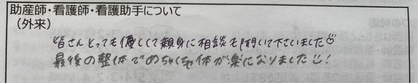 助産師・看護師・看護助手について
(外来)
皆さんとっても優しくて親身に相談を聞いて下さいました
最後の整体でめちゃくちゃ体が楽になりました!